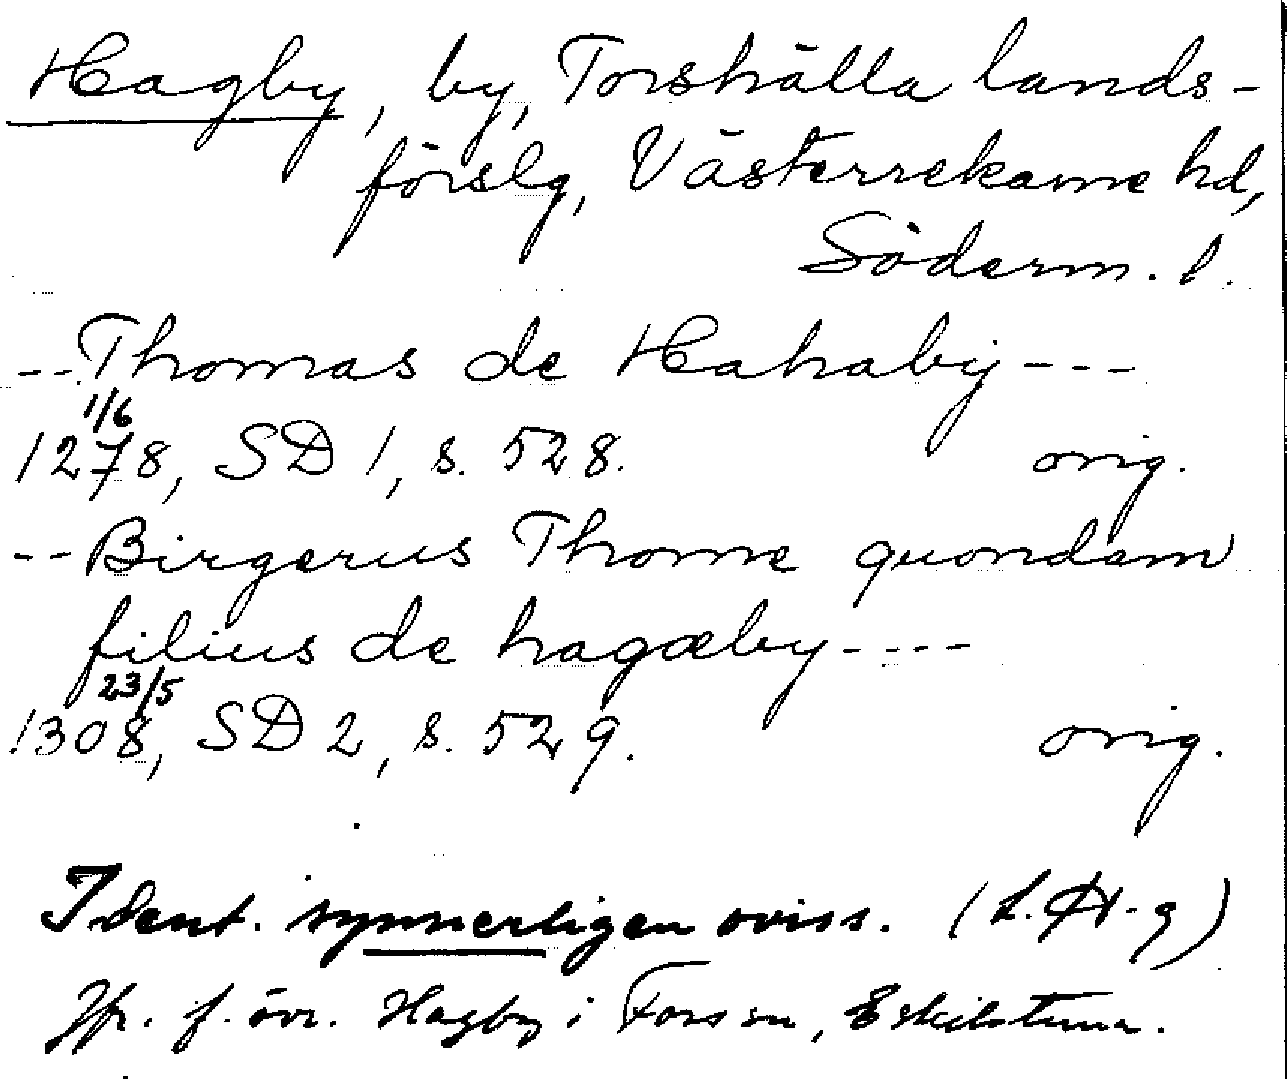 Hagby, by, Torshälla lands-
förslg, Västerrekarne hd,
Söderm. l.
--Thomas de Hahaby---
1/6
1278, SD 1, s. 528. orig.
--Birgerus Thome quondam
filius de hagæby----
23/5
1308, SD 2, s. 529. orig.
Ident. synnerligen oviss. (L. H-g)
Jfr. f. övr. Hagby i Fors sn, Eskilstuna.